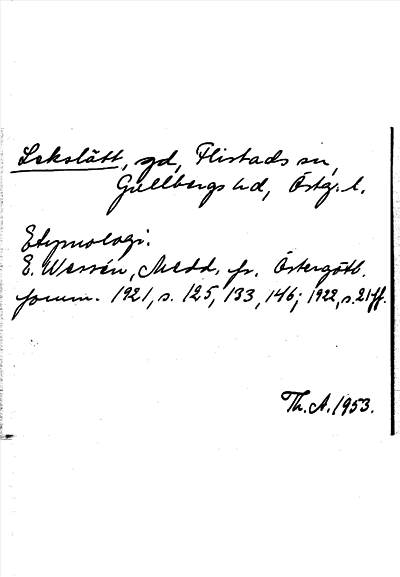 Lekslätt, gd, Flistads sn,
Gullbergs hd, Östg. l.
Etymologi.
E. Wessén, Medd. fr. Östergötl.
fornm. 1921, s. 125, 133, 146; 1922, s. 21 ff.
Th. A. 1953.